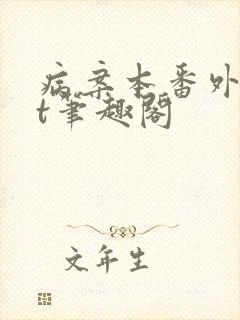 病案本番外
t笔趣阁
文年生